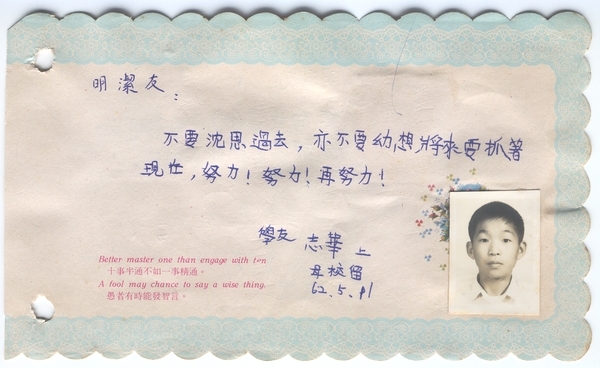 明潔友：
不要沈思過去，亦不要幼想將來要抓著
現在，努力！努力！再努力！
學友 志華 上
母校留
62.5.11
Better master one than engage with ten
十事半通不如一事精通。
A fool may chance to say a wise thing.
愚者有時能發智言。